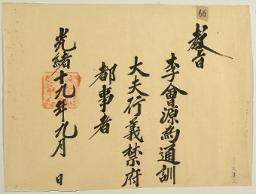 66
敎旨
李會源爲通訓
大夫行義禁府
都事者
光緖十九年九月　日